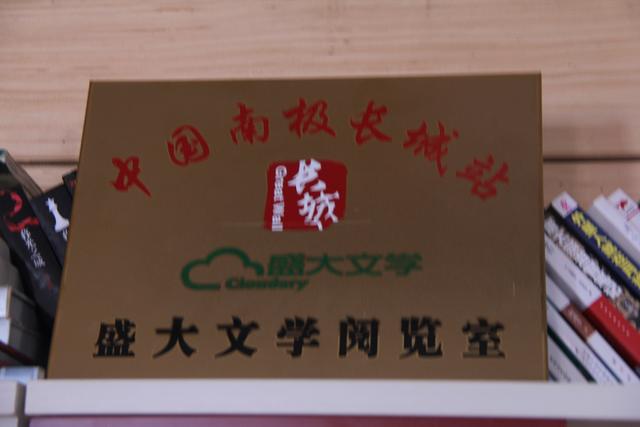 中国南极长城站
长城
Great Wall
盛大文学
Cloudary
盛大文学阅览室